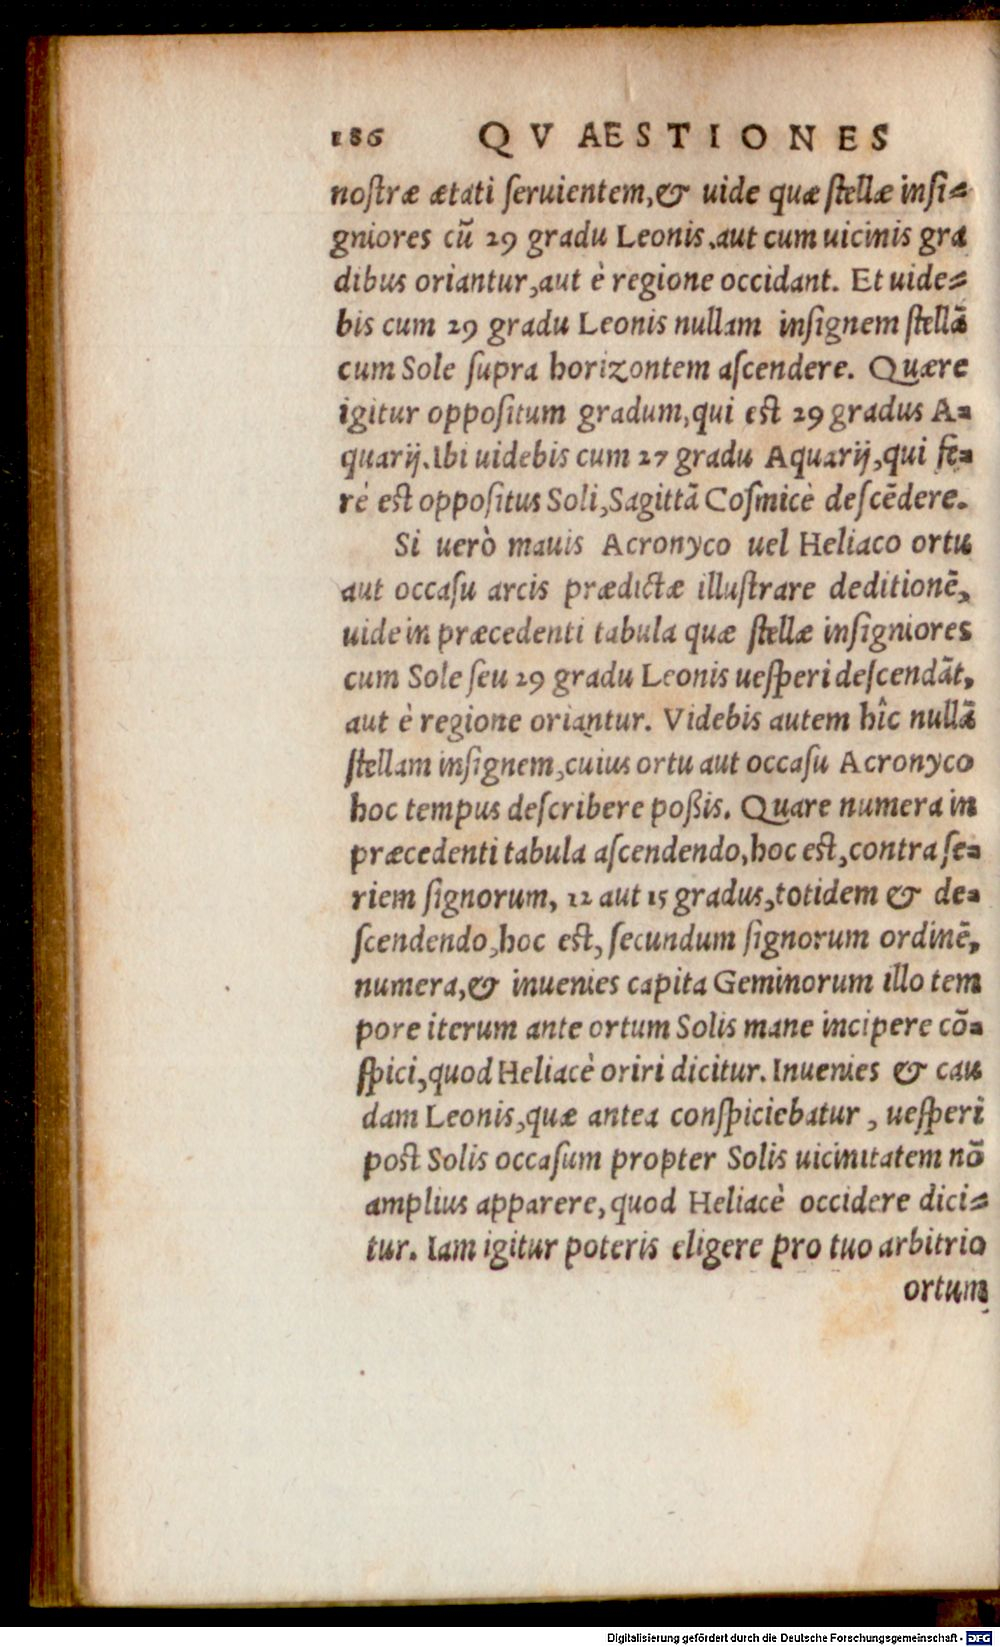 186 QVAESTIONES
nostræ ætati seruientem,& uide quæ stellæ insi=
gniores cũ 29 gradu Leonis, aut cum uicinis gra
dibus oriantur, aut è regione occidant. Et uide=
bis cum 29 gradu Leonis nullam insignem stellã
cum Sole supra horizontem ascendere. Quære
igitur oppositum gradum, qui est 29 gradus A=
quarij. Ibi uidebis cum 27 gradu Aquarij, qui fe=
rè est oppositus Soli, Sagittã Cosmicè descẽdere.
Si uerò mauis Acronyco uel Heliaco ortu
aut occasu arcis prædictæ illustrare deditionẽ,
uide in præcedenti tabula quæ stellæ insigniores
cum Sole seu 29 gradu Leonis uesperi descendãt,
aut è regione oriantur. Videbis autem hîc nullã
stellam insignem, cuius ortu aut occasu Acronyco
hoc tempus describere poßis. Quare numera in
præcedenti tabula ascendendo, hoc est, contra se=
riem signorum, 12 aut 15 gradus, totidem & de=
scendendo, hoc est, secundum signorum ordinẽ,
numera, & inuenies capita Geminorum illo tem
pore iterum ante ortum Solis mane incipere cõ=
spici, quod Heliacè oriri dicitur. Inuenies & cau
dam Leonis, quæ antea conspiciebatur, uesperi
post Solis occasum propter Solis uicinitatem nõ
amplius apparere, quod Heliacè occidere dici=
tur. Iam igitur poteris eligere pro tuo arbitrio
ortum
Digitalisierung gefördert durch die Deutsche Forschungsgemeinschaft - DFG